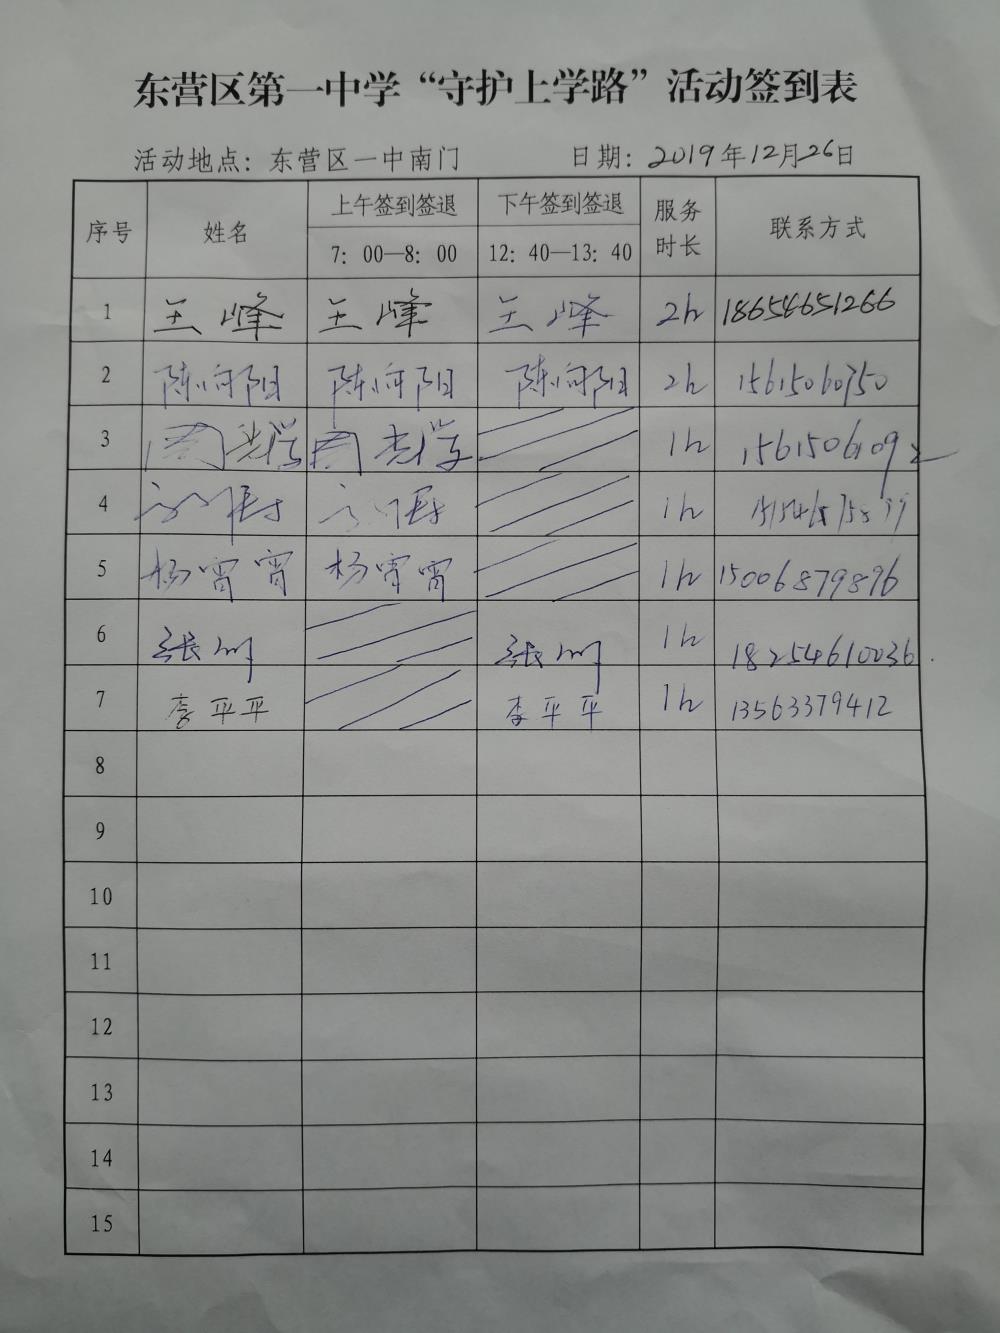 东营区第一中学“守护上学路”活动签到表
活动地点：东营区一中南门 日期：2019年12月26日
序号 姓名 上午签到签退 下午签到签退 服务时长 联系方式
7：00—8：00 12：40—13：40
1 王峰 王峰 王峰 2h 18654651266
2 陈向阳 陈向阳 陈向阳 2h 15615060750
3 周光学 周光学 1h 15615061092
4 1h
5 杨霄霄 杨霄霄 1h 15006879896
6 张 张 1h 18254610036
7 李平平 李平平 1h 13563379412
8
9
10
11
12
13
14
15